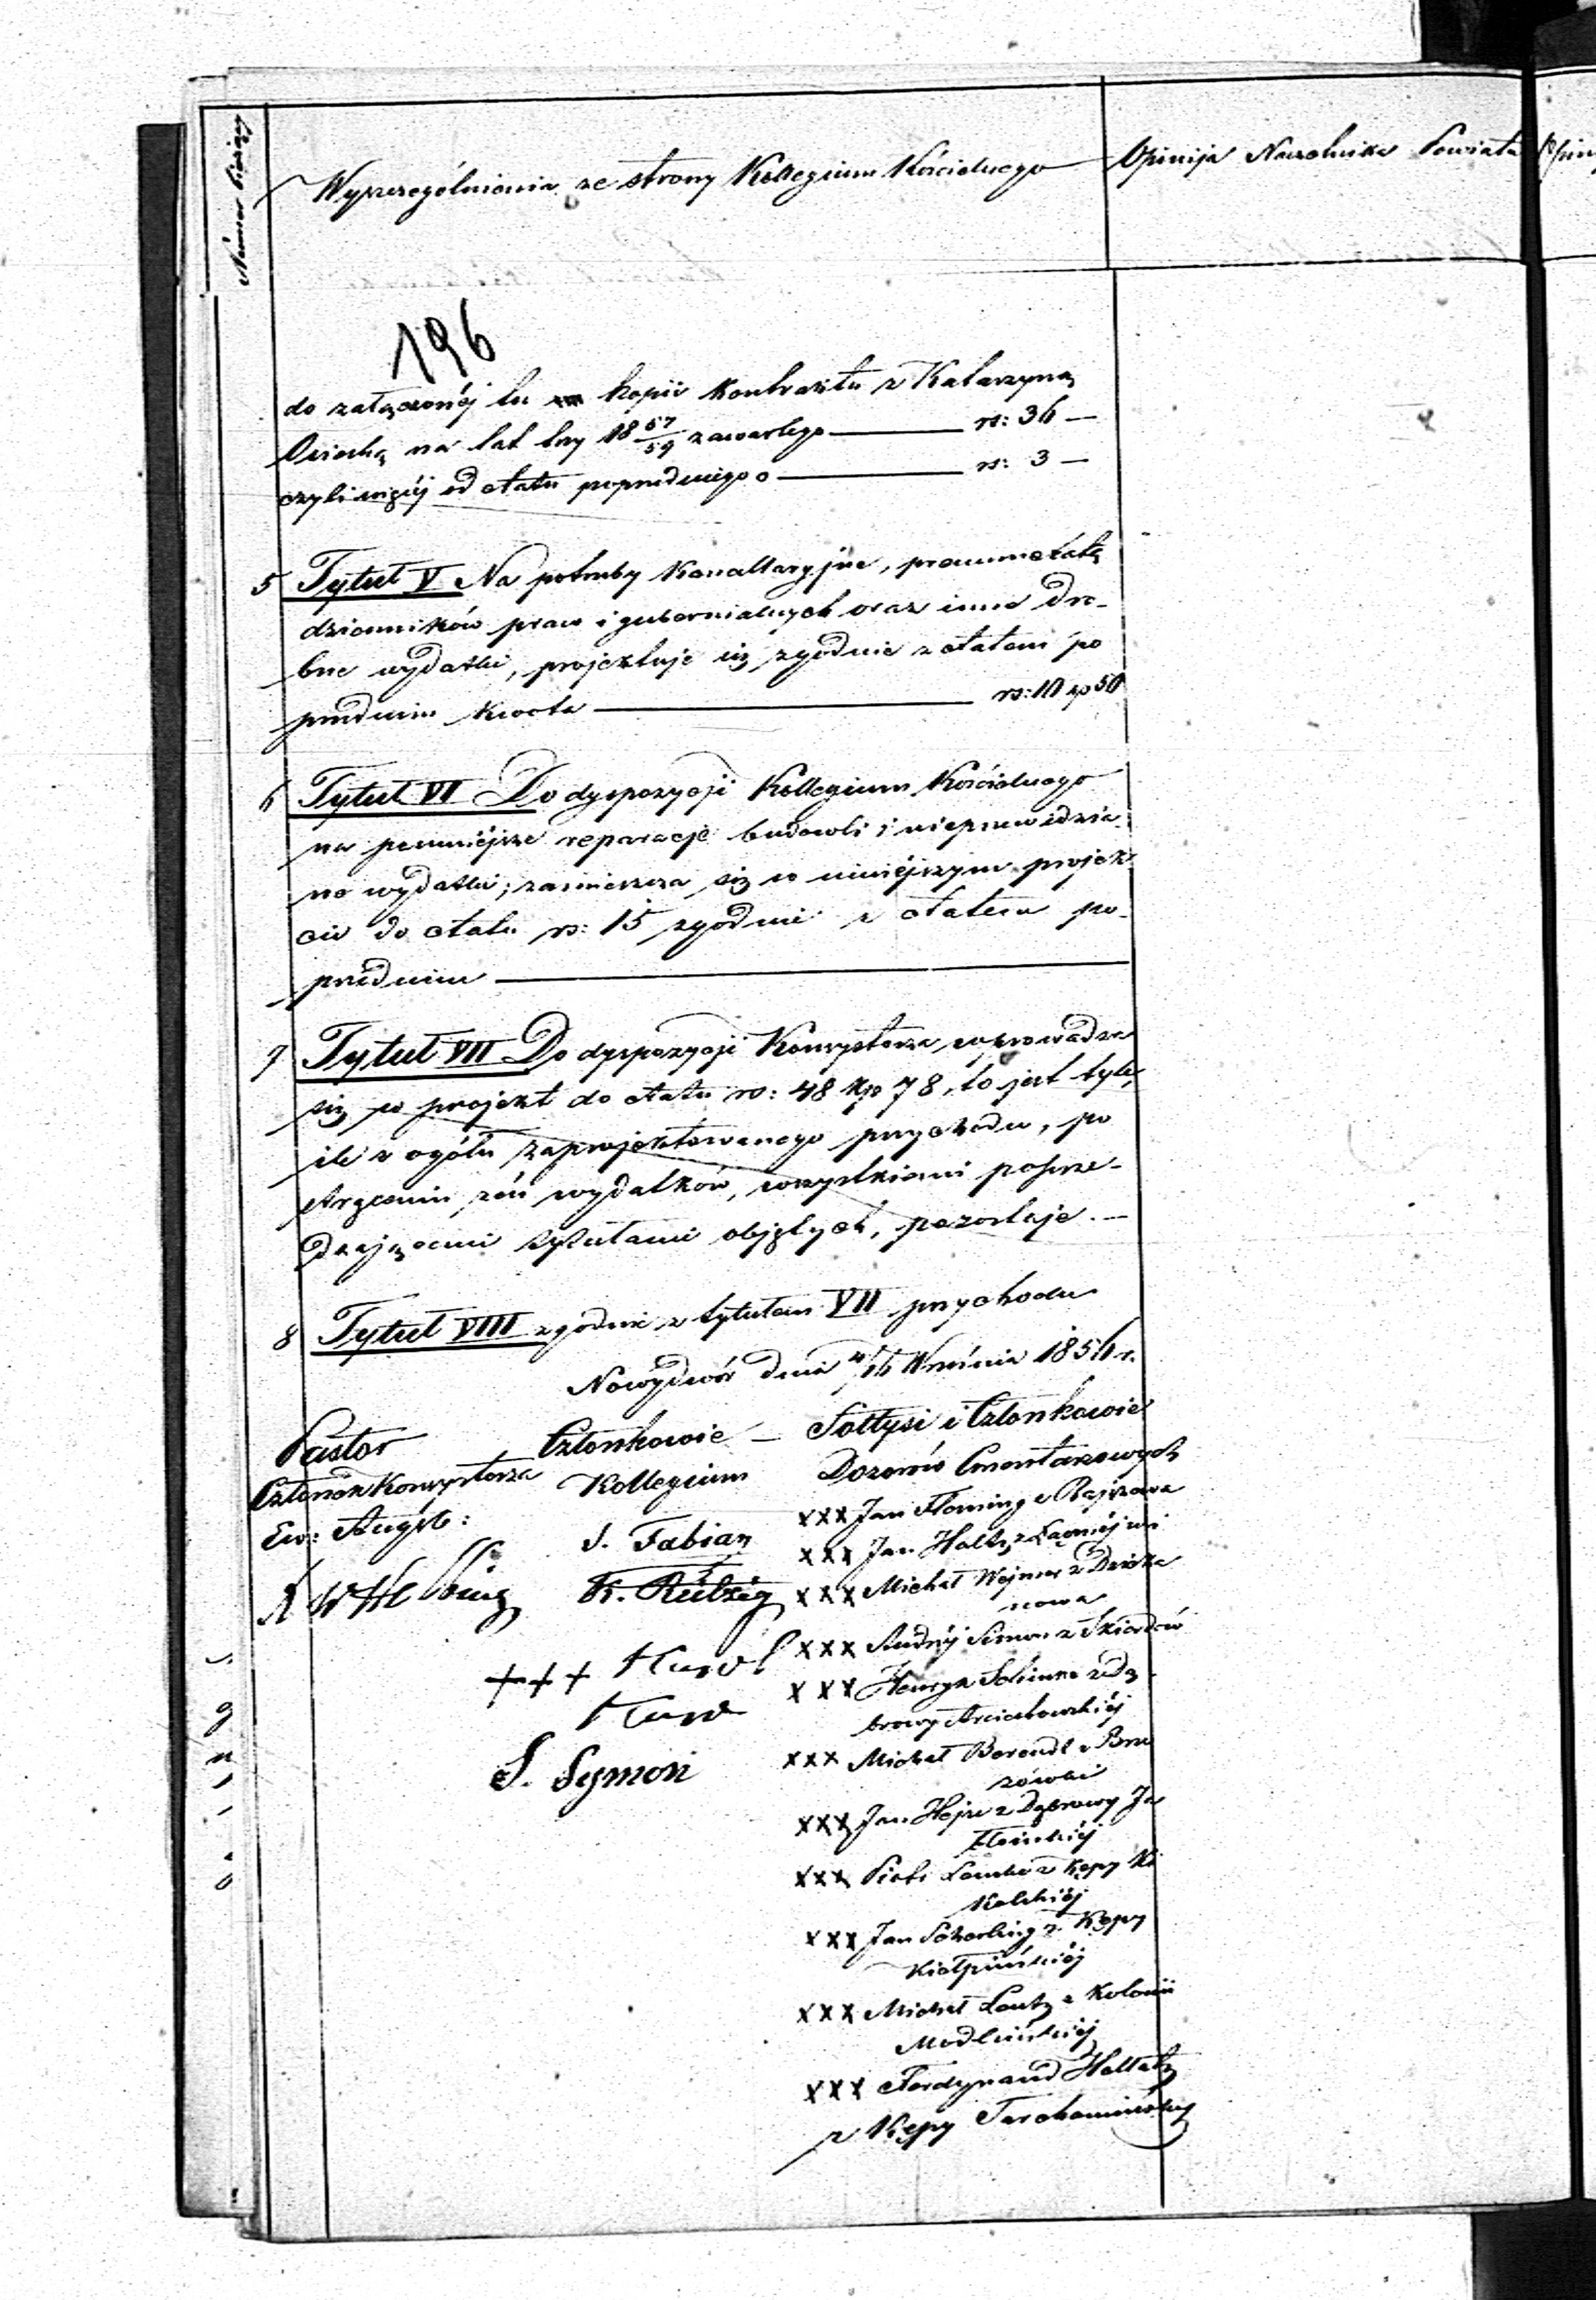 Numer Bieżący
Wyszczególnienia ze strony Kollegium Kościelnego
Opinija Naczelnika Powiatu
196
do załączonéj tu kopii Kontraktu z Katarzyną
na lat trzy 18 57/59 zawartego — rs: 36 —
czyli więcéj od etatu poprzedniego o — rs: 3 —
5 Tytuł V Na potrzeby Kancellaryjne, prenumeratę
dzienników praw i gubernialnych oraz inne dro-
bne wydatki, projektuje się zgodnie z etatem po
przednim kwota — rs: 10 kp 50
6 Tytuł VI Do dyspozycji Kollegium Kościelnego
na pomniéjsze reparacje budowli i nieprzewidzia-
ne wydatki, zamieszcza się w niniéjszym projek-
cie do etatu rs: 15 zgodnie z etatem po-
przednim —
7 Tytuł VII Do dyspozycji Konsystorza, wprowadza
się w projekt do etatu rs: 48 kp 78, to jest tyle,
ile z ogółu zaprojektowanego przychodu, po
strąceniu zeń wydatków, wszystkiemi poprze-
dzającemi tytułami objętych, pozostaje. —
8 Tytuł VIII zgodnie z tytułem VII przychodu
Nowydwór dnia 4/16 Września 1856 r.
Pastor
Członek Konsystorza
Ew: Augsb:
Członkowie —
Kollegium
J. Fabian
+++
S. Symon
Sołtysi i Członkowie
Dozorów Cmentarzowych
xxx Jan Fleming z Rajszewa
xxx Jan
xxx Michał Wejmer z
nowa
xxx
xxx Henryk z Dą-
browy
xxx Michał Berendt z
xxx Jan z Dąbrowy
xxx Piotr z Kępy Ki
Kolskiéj
xxx Jan z Kępy
Kiełpińskiéj
xxx Michał Lentz z Kolonii
Modlińskiéj
xxx Ferdynand
z Kępy Tarchomińskiéj